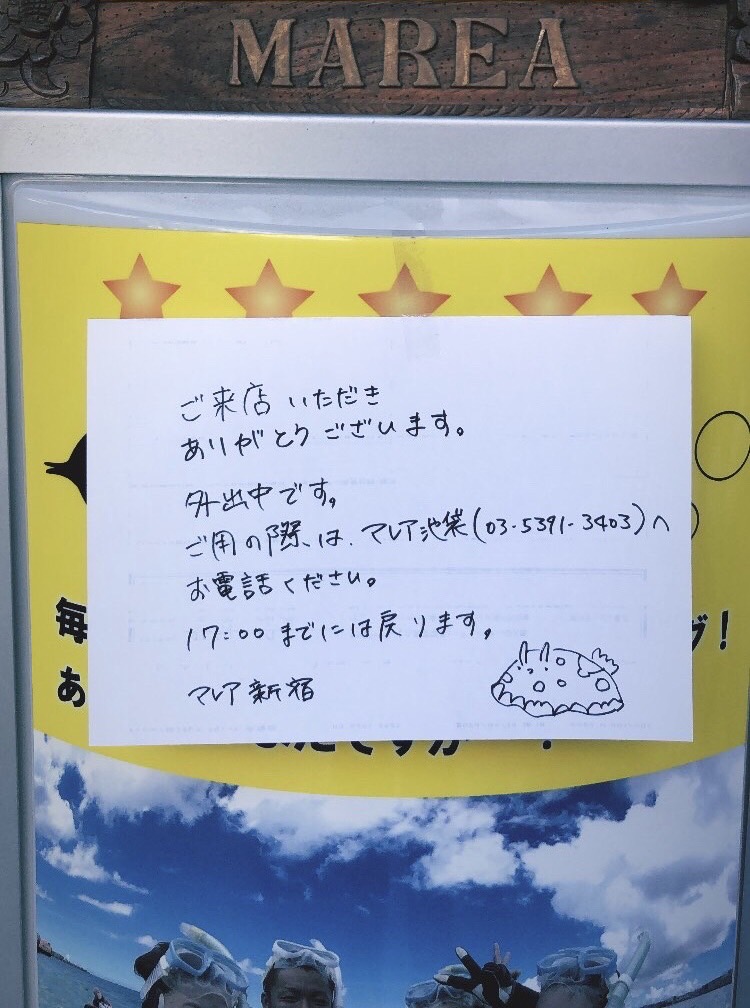 MAREA
ご来店いただき
ありがとうございます。
外出中です。
ご用の際は、マレア池袋(03-5391-3403)へ
お電話ください。
17:00までには戻ります。
マレア新宿
毎
グ!
あ